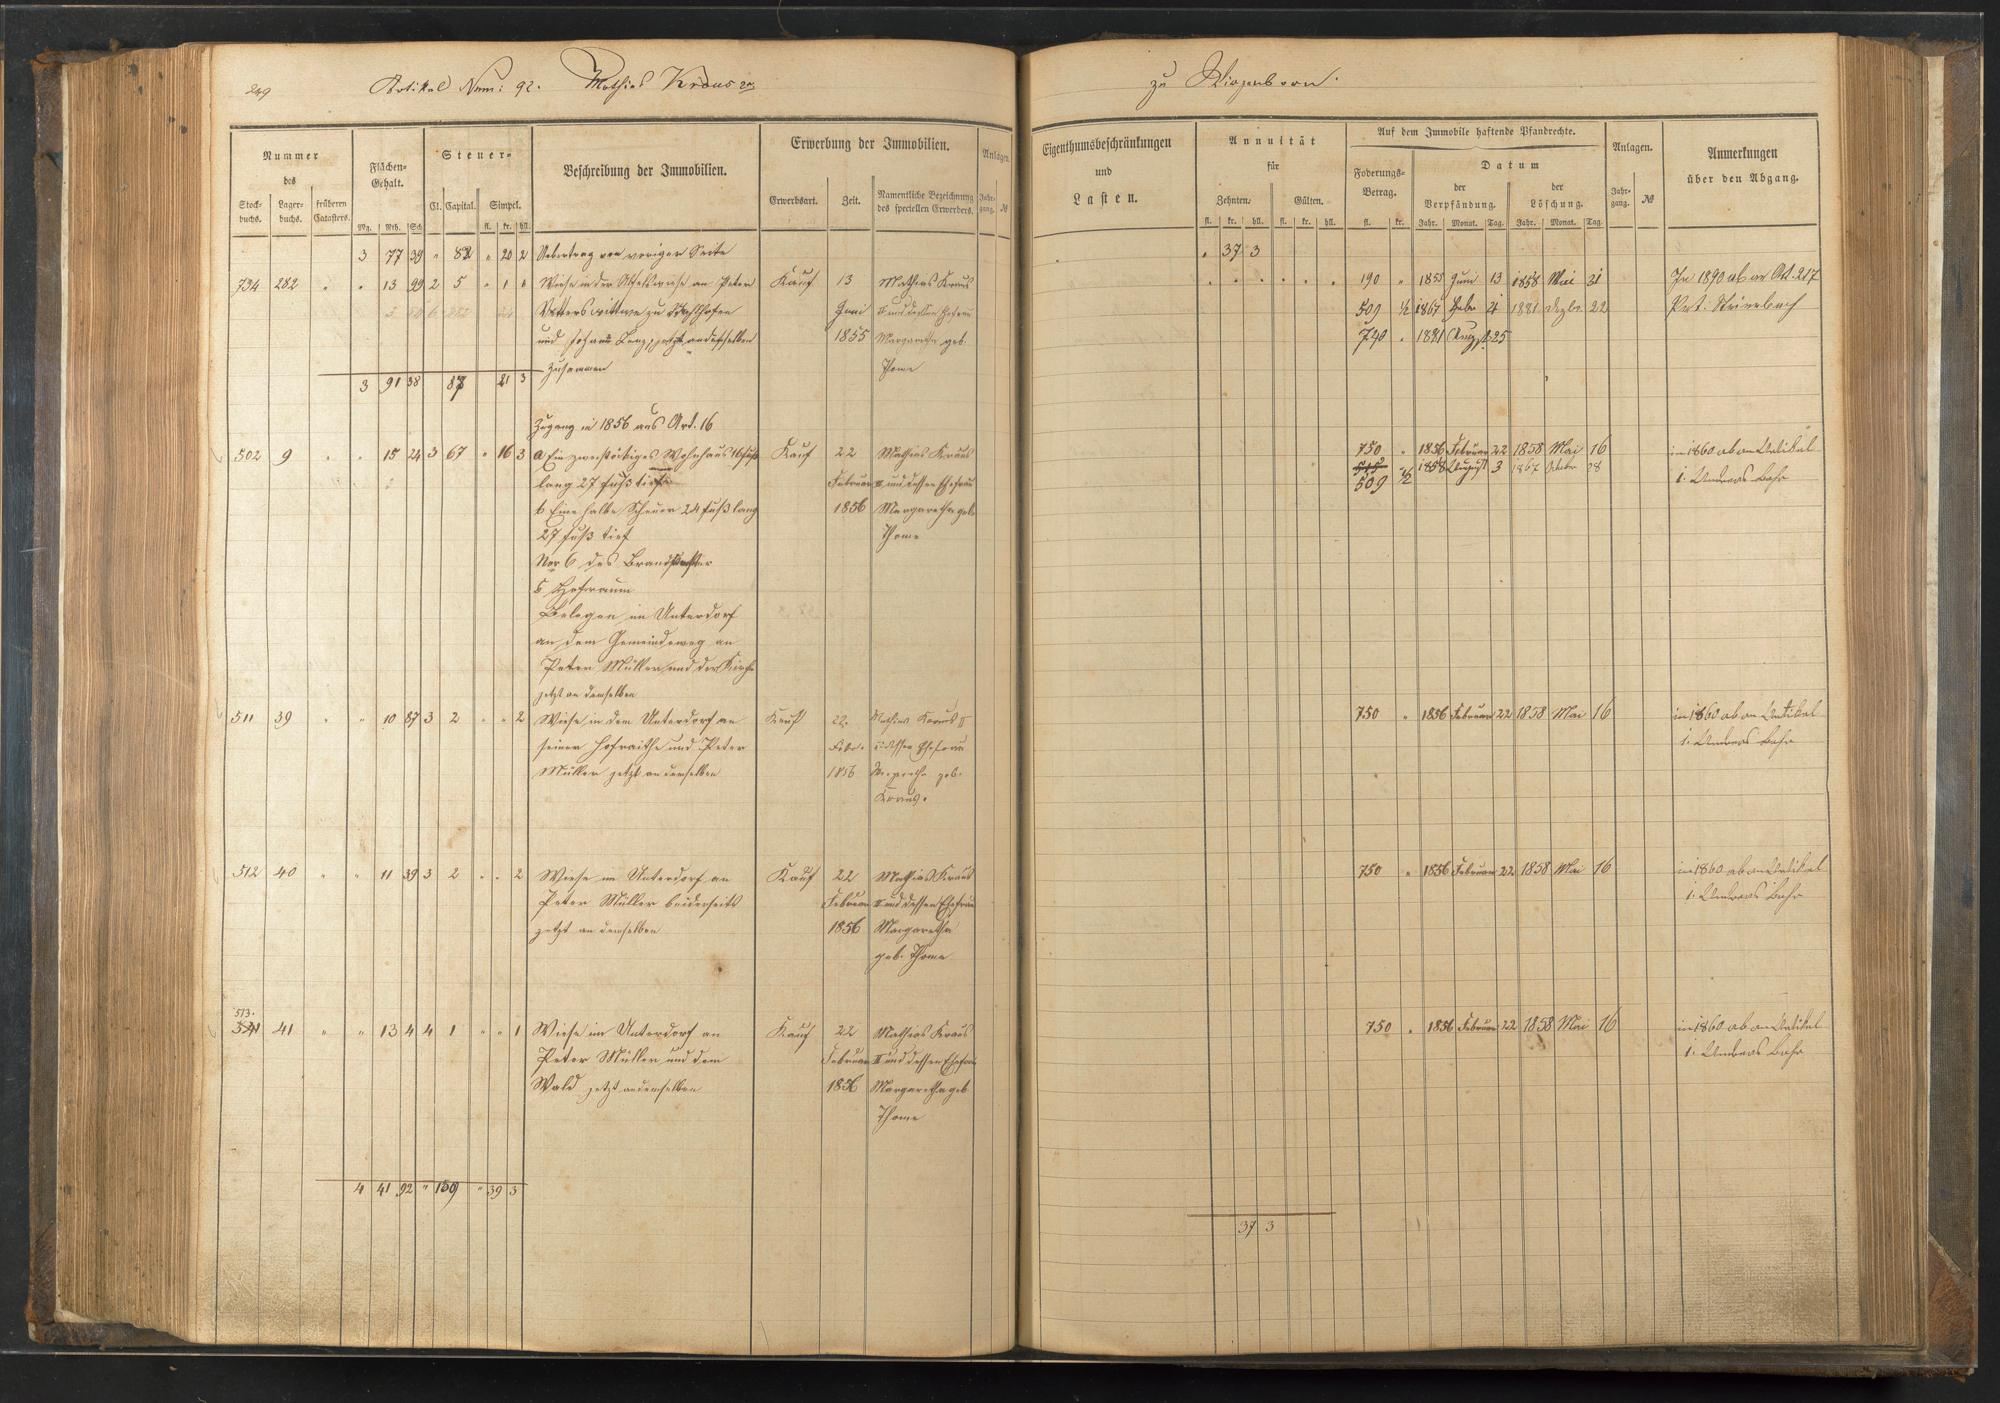 249
Artikel Num: 92. Mathias Kraus 2r
zu
Nummer
des
Stock-
buchs.
Lager-
buchs.
früheren
Catasters.
Flächen-
Gehalt.
Mg. Rth. Sch
Steuer-
Cl. Capital. Simpel.
fl. kr. hll.
Beschreibung der Immobilien.
Erwerbung der Immobilien.
Erwerbsart. Zeit.
Namentliche Bezeichnung
des speciellen Erwerbers.
Anlagen.
Jahr-
gang. №
Eigenthumsbeschränkungen
und
Lasten.
Annuität
für
Zehnten. Gülten.
fl. kr. hll. fl. kr. hll.
Auf dem Immobile haftende Pfandrechte.
Foderungs-
Betrag.
fl. kr.
Datum
der
Verpfändung.
der
Löschung.
Jahr. Monat. Tag. Jahr. Monat. Tag.
Anlagen.
Jahr-
gang. №
Anmerkungen
über den Abgang.
3 77 39 " 82 " 20 2 Uebertrag von voriger Seite
734 282 " " 13 99 2 5 " 1 " Wiese in der an Peter
Wittwe zu Stahlhofen
und Johann jetzt an denselben
zusammen
3 91 38 87 21 3
Kauf 13
Juni
1855
Mathias Kraus
II und dessen Ehefrau
Margaretha geb.
Thome
" 37 3
190 " 1855 Juni 13 1858 Mai 31
509 ½ 1867 Febr 4 1881 Dezbr. 22
740 " 1881 Augst 25
In 1890 ab an Art. 217
Pet.
Zugang in 1856 aus Art. 16
502 9 " " 15 24 3 67 " 16 3 a Ein zweistöckiges Wohnhaus 16 Fuß
lang 27 Fuß tief
b Eine halbe Scheuer 24 Fuß lang
27 Fuß tief
Nor 6 des Brandkataster
c Hofraum
Belegen im Unterdorf
an dem Gemeindeweg an
Peter Müller und der Kirche
jetzt an demselben
Kauf 22
Februar
1856
Mathias Kraus
II und dessen Ehefrau
Margaretha geb.
Thome
750 " 1856 Februar 22 1858 Mai 16
515 ½ 1858 August 3 1867 Febr 28
509
in 1860 ab an Artikel
1. Andreas Bahr
511 39 " " 10 87 3 2 " " 2 Wiese in dem Unterdorf an
seiner Hofraithe und Peter
Müller jetzt an demselben
Kauf 22.
Febr.
1856
Mathias Kraus II
u dessen Ehefrau
Margreth. geb.
Kraus.
750 " 1856 Februar 22 1858 Mai 16
in 1860 ab an Artikel
1. Andreas Bahr
512 40 " " 11 39 3 2 " " 2 Wiese im Unterdorf an
Peter Müller beiderseits
jetzt an demselben
Kauf 22
Februar
1856
Mathias Kraus
II und dessen Ehefrau
Margaretha
geb. Thome
750 " 1856 Februar 22 1858 Mai 16
in 1860 ab an Artikel
1. Andreas Bahr
513.
541 41 " " 13 4 4 1 " " 1 Wiese im Unterdorf an
Peter Müller und dem
Wald jetzt an demselben
Kauf 22
Februar
1856
Mathias Kraus
II und dessen Ehefrau
Margaretha geb
Thome
750 " 1856 Februar 22 1858 Mai 16
in 1860 ab an Artikel
1. Andreas Bahr
4 41 92 " 159 " 39 3
37 3